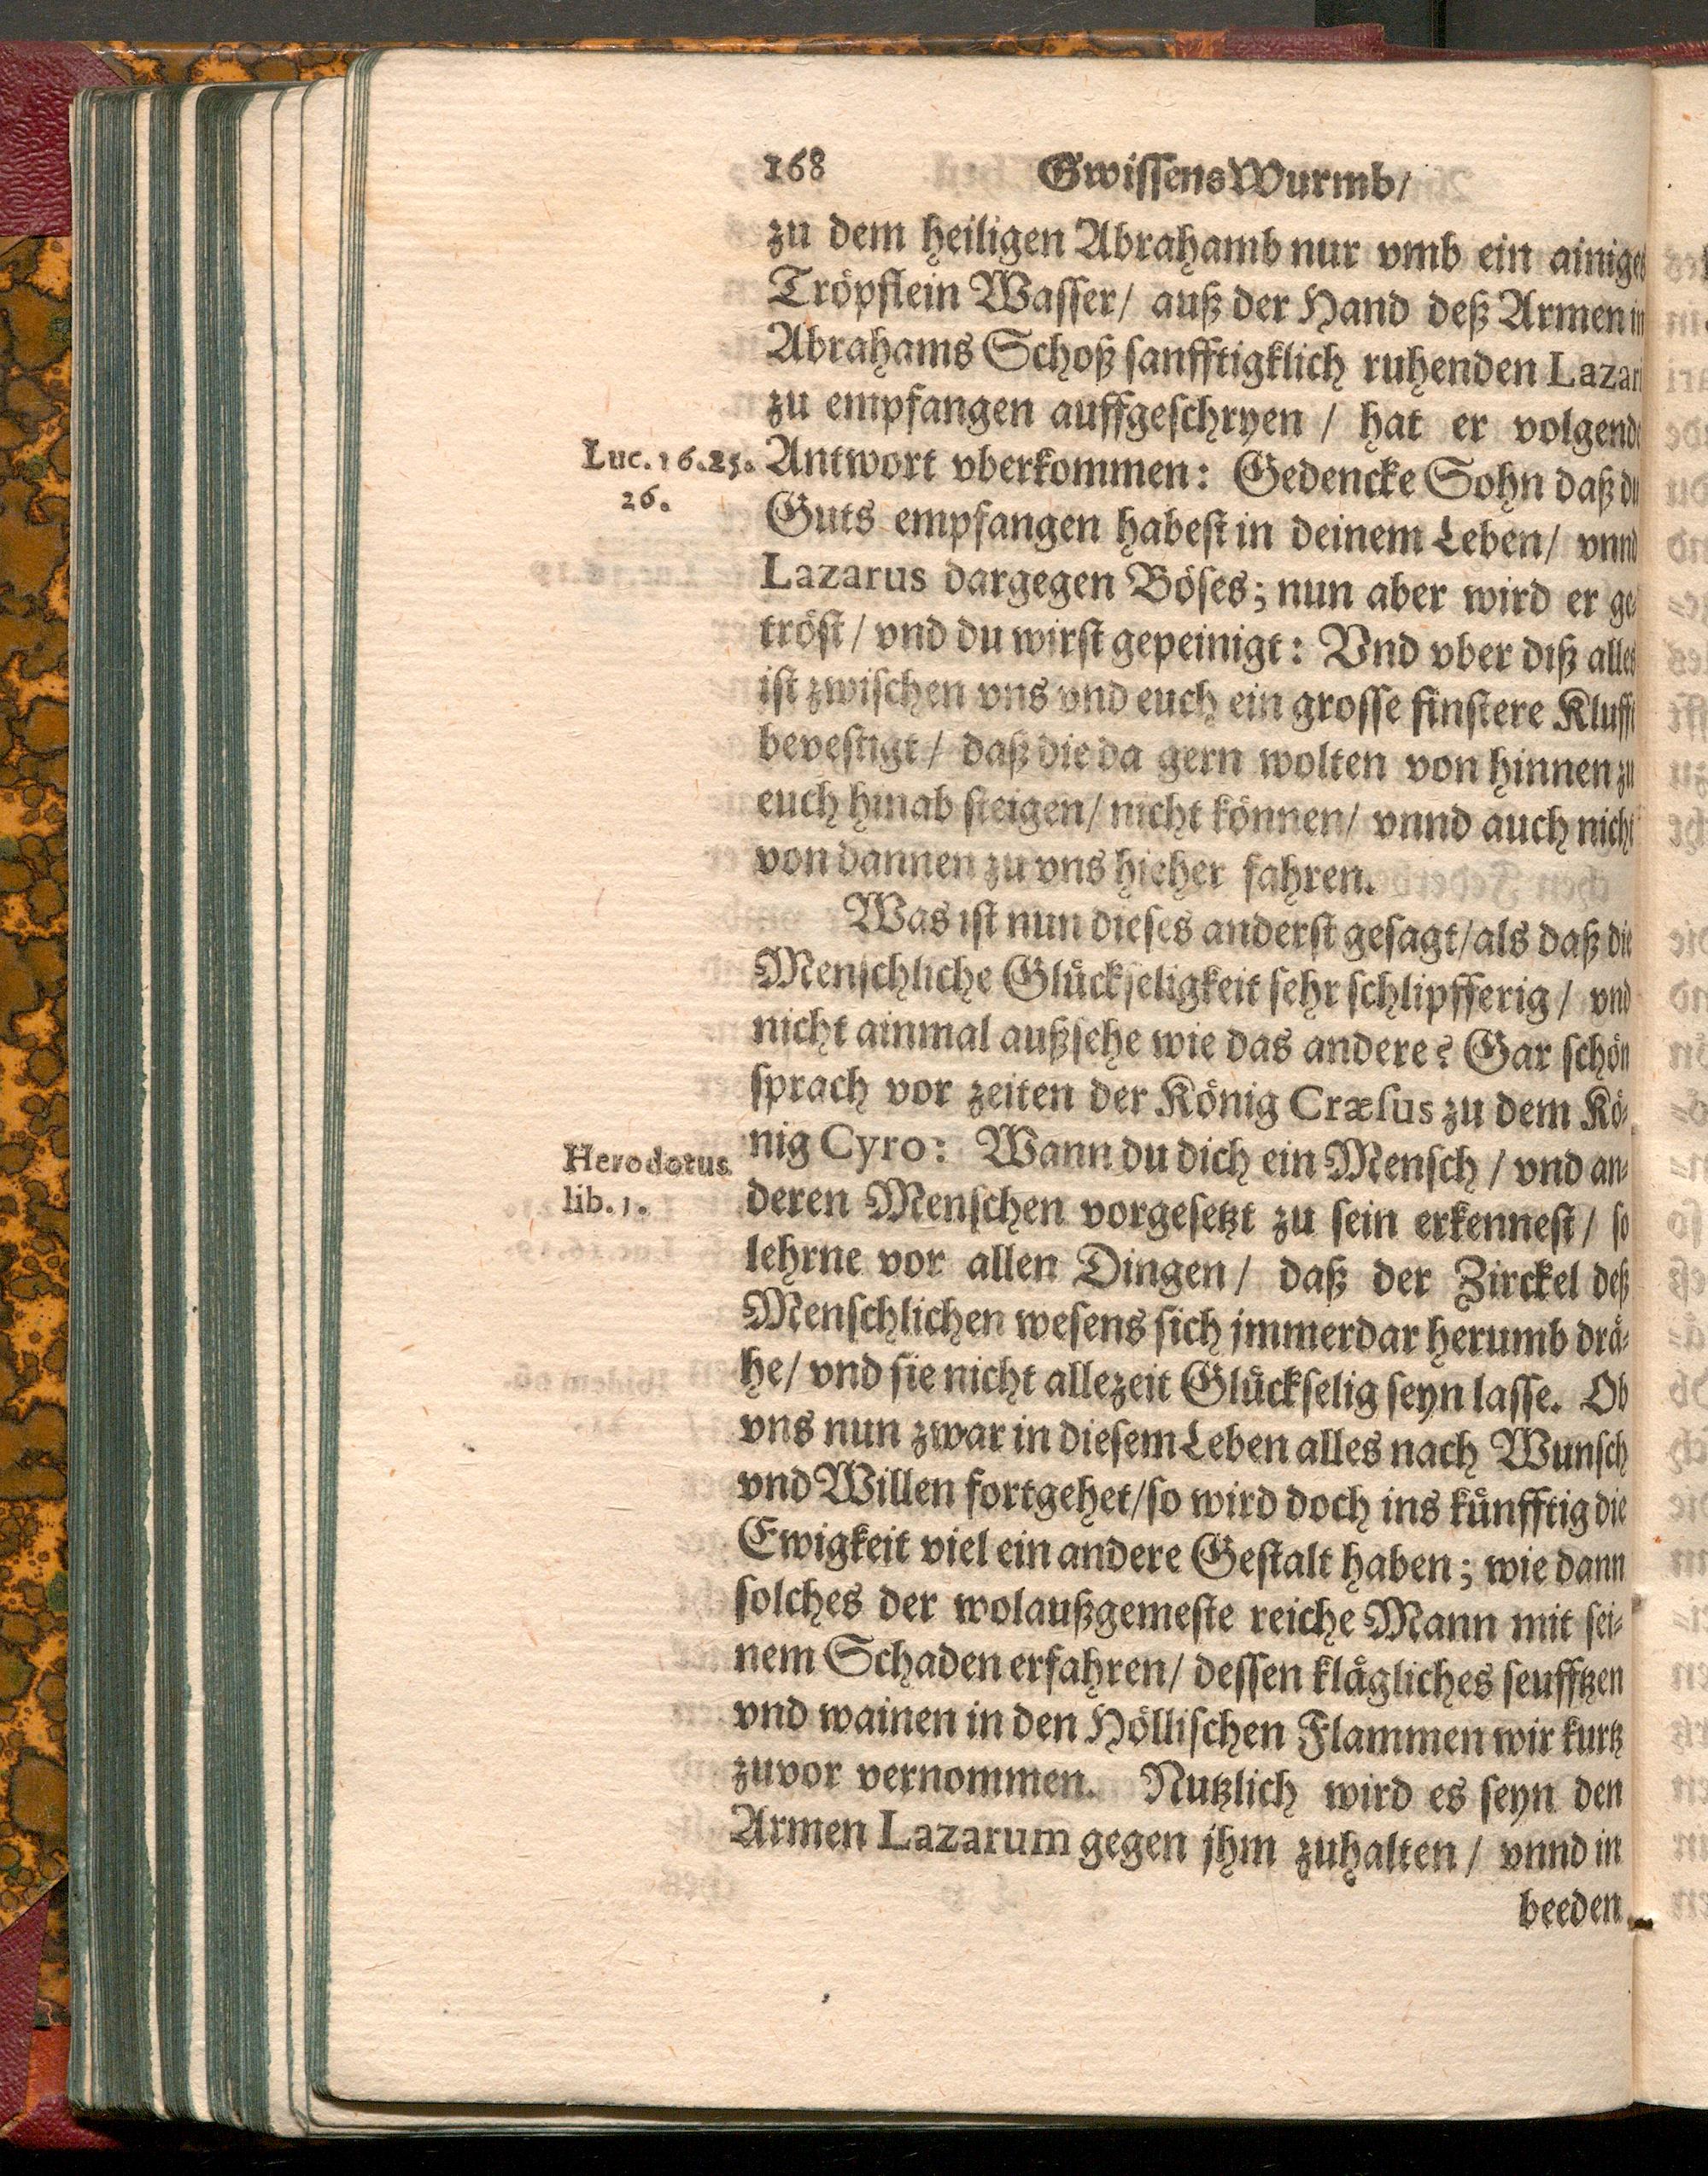 168 GwissensWurmb/
zu dem heiligen Abrahamb nur vmb ein ainiges
Tröpflein Wasser/ auß der Hand deß Armen in
Abrahams Schoß sanfftigklich ruhenden Lazari
zu empfangen auffgeschryen / hat er volgende
Luc. 16.25.
26.
Antwort vberkommen: Gedencke Sohn daß du
Guts empfangen habest in deinem Leben/ vnnd
Lazarus dargegen Böses; nun aber wird er ge-
tröst/ vnd du wirst gepeinigt: Vnd vber diß alles
ist zwischen vns vnd euch ein grosse finstere Klufft
bevestigt/ daß die da gern wolten von hinnen zu
euch hinab steigen/ nicht können/ vnnd auch nicht
von dannen zu vns hieher fahren.
Was ist nun dieses anderst gesagt/als daß die
Menschliche Glückseligkeit sehr schlipfferig/ vnd
nicht ainmal außsehe wie das andere? Gar schön
sprach vor zeiten der König Cræsus zu dem Kö-
Herodotus
lib. 1.
nig Cyro: Wann du dich ein Mensch / vnd an-
deren Menschen vorgesetzt zu sein erkennest/ so
lehrne vor allen Dingen/ daß der Zirckel deß
Menschlichen wesens sich jmmerdar herumb drä-
he/ vnd sie nicht allezeit Glückselig seyn lasse. Ob
vns nun zwar in diesem Leben alles nach Wunsch
vnd Willen fortgehet/so wird doch ins künfftig die
Ewigkeit viel ein andere Gestalt haben; wie dann
solches der wolaußgemeste reiche Mann mit sei-
nem Schaden erfahren/ dessen klägliches seufftzen
vnd wainen in den Höllischen Flammen wir kurtz
zuvor vernommen. Nutzlich wird es seyn den
Armen Lazarum gegen jhm zuhalten/ vnnd in
beeden